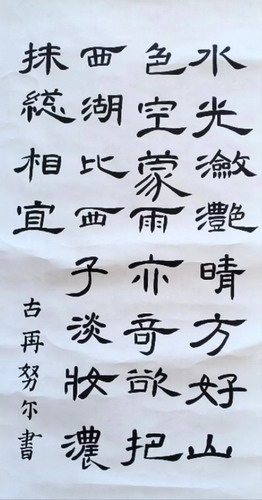 水光瀲灩晴方好山
色空蒙雨亦奇欲把
西湖比西子淡妝濃
抹總相宜
古再努尔書